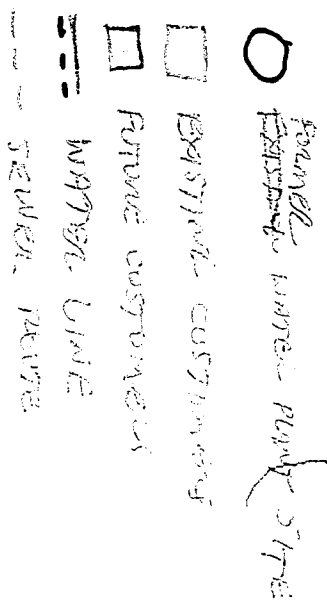 FORMER WATER PLANT SITE
EXISTING CUSTOMERS
FUTURE CUSTOMERS
WATER LINE
SEWER ROUTE